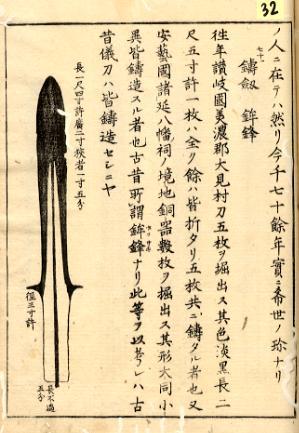 32
ノ人ニ在テハ然リ今千七十餘年實ニ希世ノ珍ナリ
鑄劔 鉾鋒
往年讃岐國美濃郡大見村刀五枚ヲ掘出ス其色淡黒長二
尺五寸許一枚ハ全ク餘ハ皆折タリ五枚共ニ鑄タル者也又
安藝國諸延八幡祠ノ境地銅器數枚ヲ掘出ス其形大同小
異皆鑄造スル者也古昔所謂鉾鋒ナリ此等ヲ以考レハ古
昔儀刀ハ皆鑄造セシニヤ
長一尺四寸許廣二寸狹者一寸五分
徑三寸許
長不過
五分